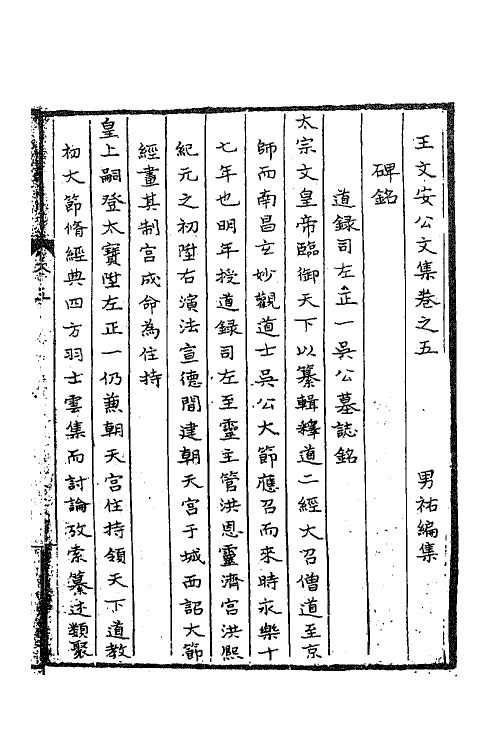 王文安公文集卷之五　男祐編集
碑銘
道録司左正一吳公墓誌銘
太宗文皇帝臨御天下以纂輯釋道二經大召僧道至京
師而南昌玄妙觀道士吳公大節應召而來時永樂十
七年也明年授道録司左至靈主管洪恩靈濟宮洪熙
紀元之初陞右演法宣德間建朝天宮于城西詔大節
經畫其制宮成命為住持
皇上嗣登太寶陞左正一仍兼朝天宮住持領天下道教
初大節脩經典四方羽士雲集而討論攷索纂述類聚